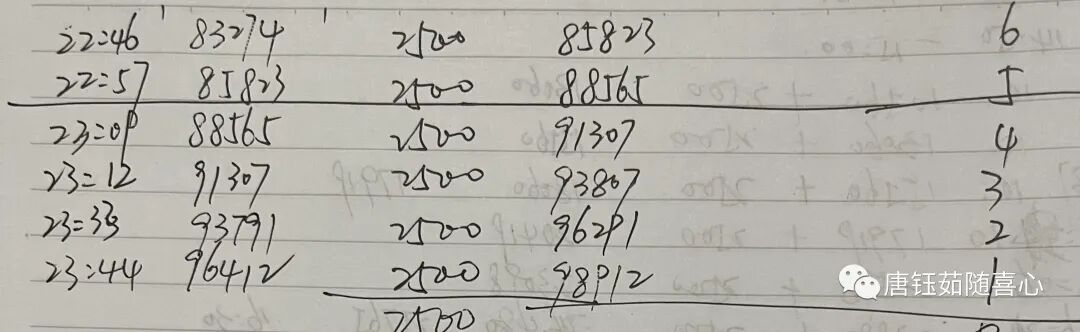 22:46 83274 2500 85823 6
22:57 85823 2500 88565 5
23:09 88565 2500 91307 4
23=12 91307 2500 93807 3
23=33 93791 2500 96291 2
23:44 96412 2500 98912 1
2500
唐钰茹随喜心